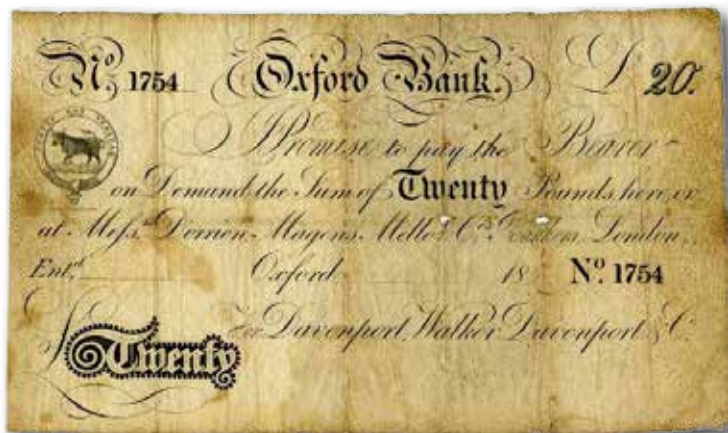 No. 1754 Oxford Bank. £ 20.
I Promise to pay the Bearer
on Demand the Sum of Twenty Pounds here, or
at Messrs. Dorrien, Magens, Mello & Co. London,
Entd. Oxford 18 No. 1754
For Davenport, Walker, Davenport & Co.
£ Twenty